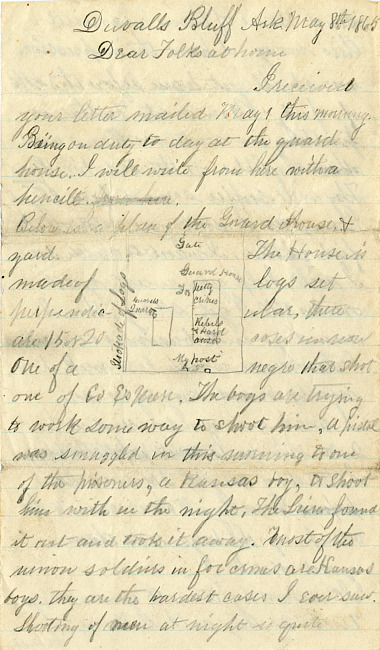 Duvalls Bluff Ark May 8th 1865
Dear Folks at home
I received
your letter mailed May 1 this morning.
Being on duty to day at the guard
house, I will write from here with a
pencil.
Below is a plan of the Guard House, &
yard
Gate
The House is
made of
logs set
perpendic
ular, there
are 15 or 20
cases in now
one of a
negro that shot
Stockade of Logs
Guard House
For
Petty
crimes
Rebels
& Hard
cases
My post
one of Co E. The boys are trying
to work some way to shoot him, A pistol
was smuggled in this morning to one
of the prisoners, a Kansas boy, to shoot
him with in the night. The found
it out and took it away. Most of the
union soldiers in for crimes are Kansas
boys. they are the hardest cases I ever saw.
Shooting of men at night is quite